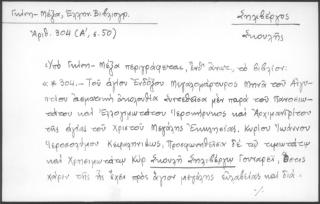 Γκίνη - Μέξα, Ἑλλην. Βιβλιογρ.
Σηλιβέργος
Ἀριθ. 304 (Α', σ. 50)
Σκουλῆς
Ὑπὸ Γκίνη - Μέξα περιγράφεται, ἔνθ' ἀνωτ., τὸ βιβλίον:
«* 304. - Τοῦ ἁγίου Ἐνδόξου Μεγαλομάρτυρος Μηνᾶ τοῦ Αἰγυ-
πτίου ᾀσματικὴ ἀκολουθία Συντεθεῖσα μὲν παρὰ τοῦ Πανοσιω-
τάτου καὶ Ἐλλογιμωτάτου Ἱεροκήρυκος καὶ Ἀρχιμανδρίτου
τῆς ἁγίας τοῦ Χριστοῦ Μεγάλης Ἐκκλησίας, Κυρίου Ἰωάννου
Ἱεροσολύμου Κεφαλληνέως, Προσφωνηθεῖσα δὲ τῷ τιμιωτάτῳ
καὶ Χρησιμωτάτῳ Κὺρ Σκουλῇ Σηλιβέργῳ Γουναρεῖ, ὅστις
χάριν τῆς ἧς ἔχει πρὸς ἅγιον μεγάλης εὐλαβείας καὶ διὰ
·/.